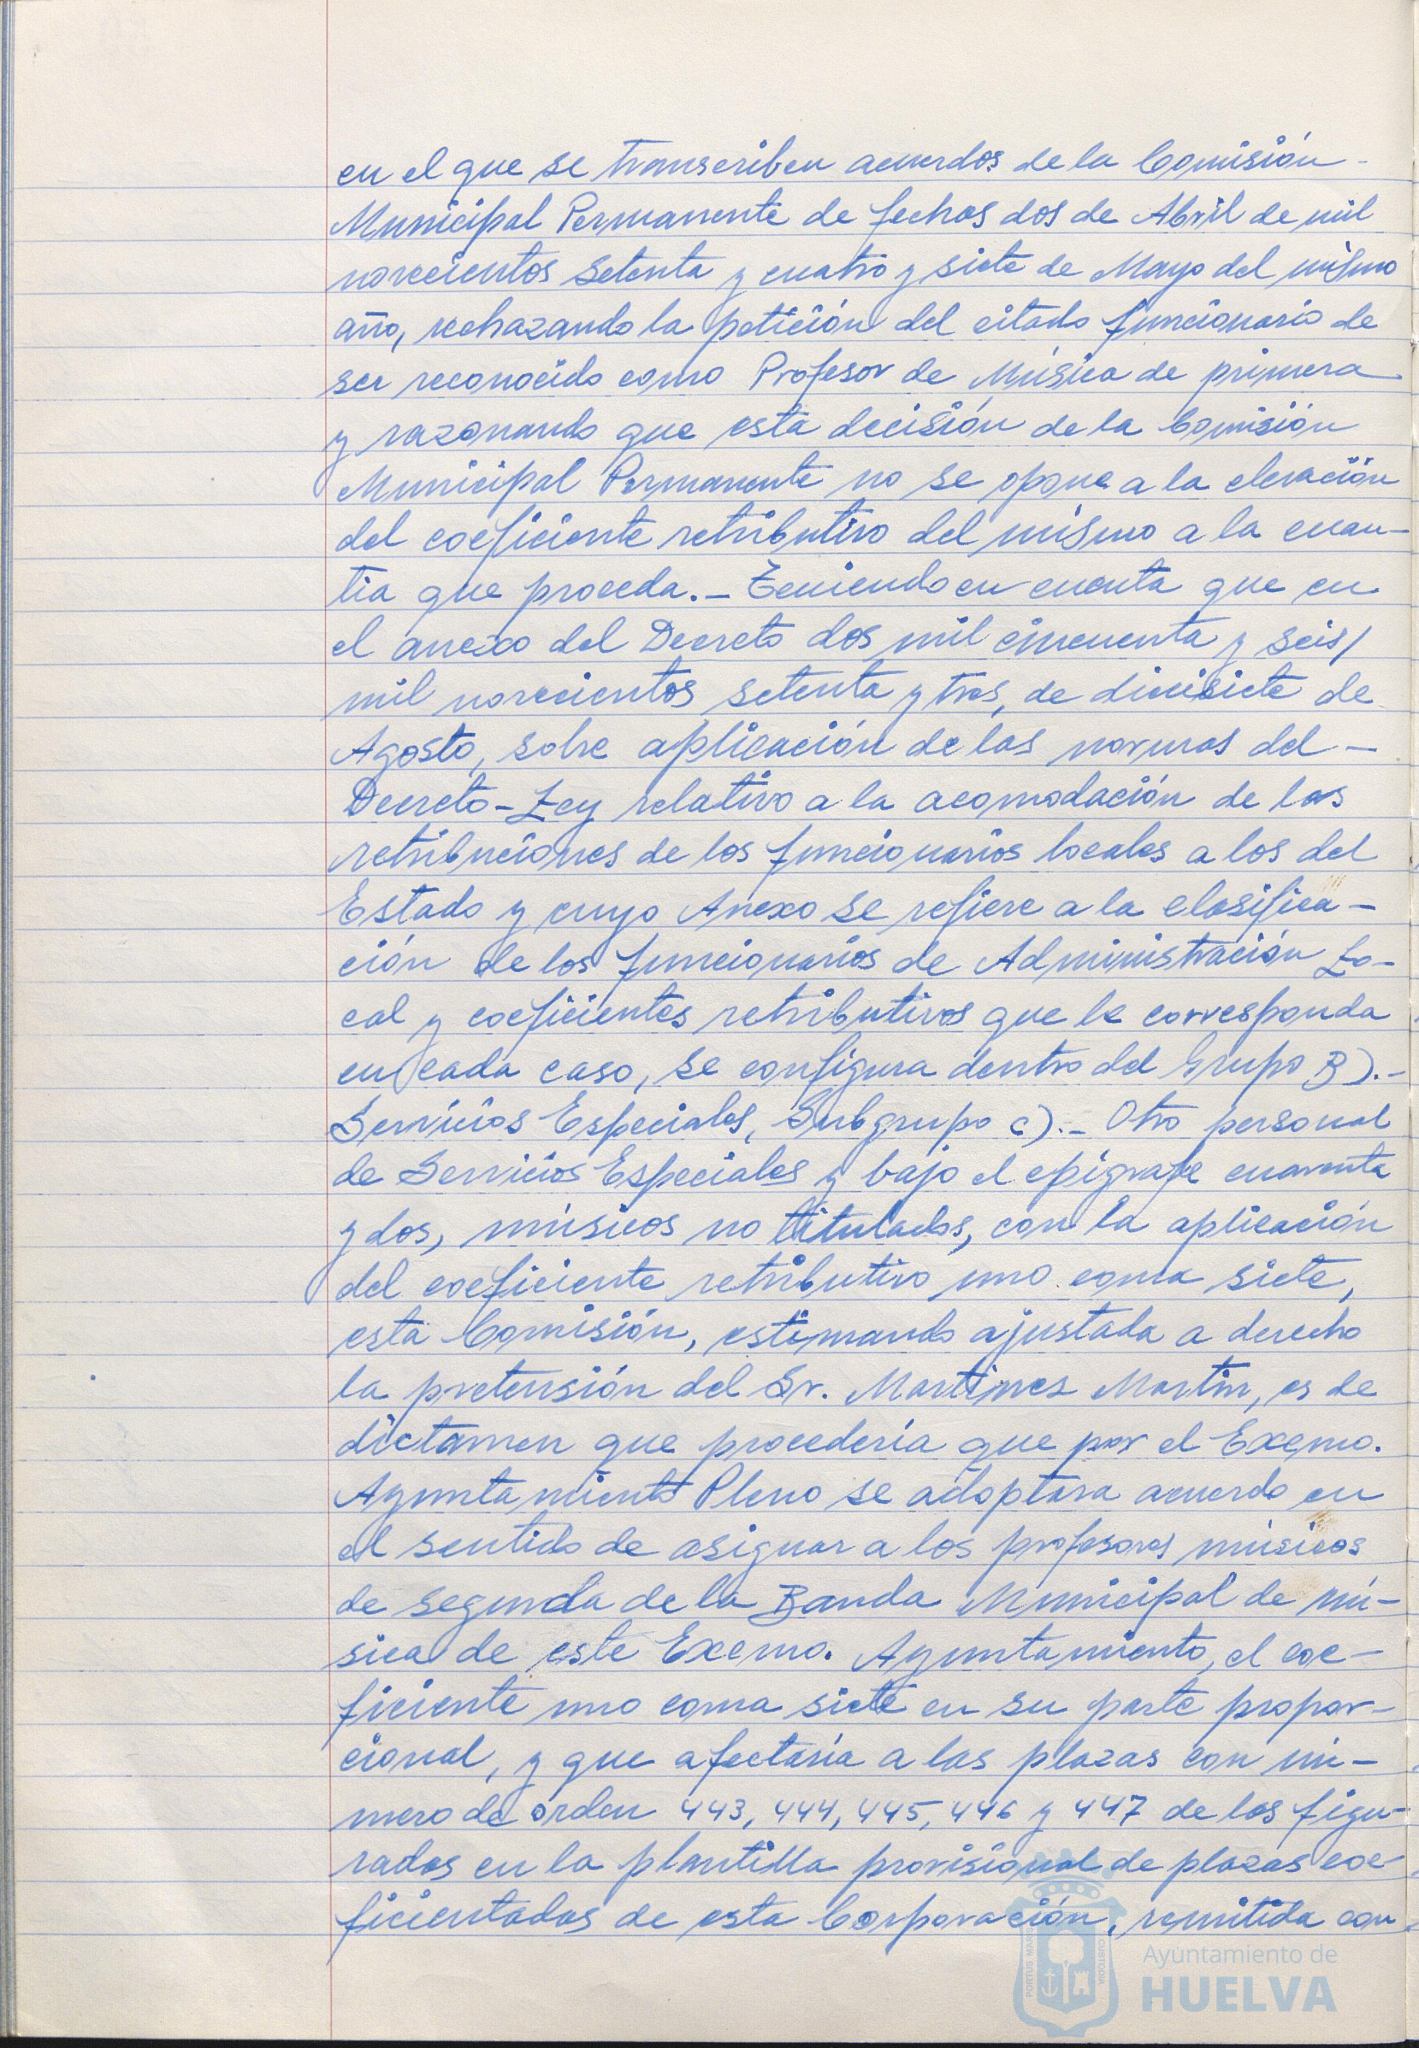 en el que se transcriben acuerdos de la Comisión
Municipal Permanente de fechas dos de Abril de mil
novecientos setenta y cuatro y siete de Mayo del mismo
año, rechazando la petición del citado funcionario de
ser reconocido como Profesor de Música de primera
y razonando que esta decisión de la Comisión
Municipal Permanente no se opone a la elevación
del coeficiente retributivo del mismo a la cuan-
tia que proceda.- Teniendo en cuenta que en
el anexo del Decreto dos mil cincuenta y seis/
mil novecientos setenta y tres, de diecisiete de
Agosto, sobre aplicación de las normas del -
Decreto-Ley relativo a la acomodación de las
retribuciones de los funcionarios locales a los del
Estado y cuyo Anexo se refiere a la clasifica-
ción de los funcionarios de Administración Lo-
cal y coeficientes retributivos que le corresponda
en cada caso, se configura dentro del Grupo B).-
Servicios Especiales, Subgrupo c).- Otro personal
de Servicios Especiales y bajo el epigrafe cuarenta
y dos, músicos no titulados, con la aplicación
del coeficiente retributivo uno coma siete,
esta Comisión, estimando ajustada a derecho
la pretensión del Sr. Martinez Martin, es de
dictamen que procedería que por el Excmo.
Ayuntamiento Pleno se adoptara acuerdo en
el sentido de asignar a los profesores músicos
de segunda de la Banda Municipal de mú-
sica de este Excmo. Ayuntamiento, el coe-
ficiente uno coma siete en su parte propor-
cional, y que afectaría a las plazas con nú-
mero de orden 443, 444, 445, 446 y 447 de las figu-
radas en la plantilla provisional de plazas coe-
ficientadas de esta Corporación, remitida con
Ayuntamiento de
HUELVA